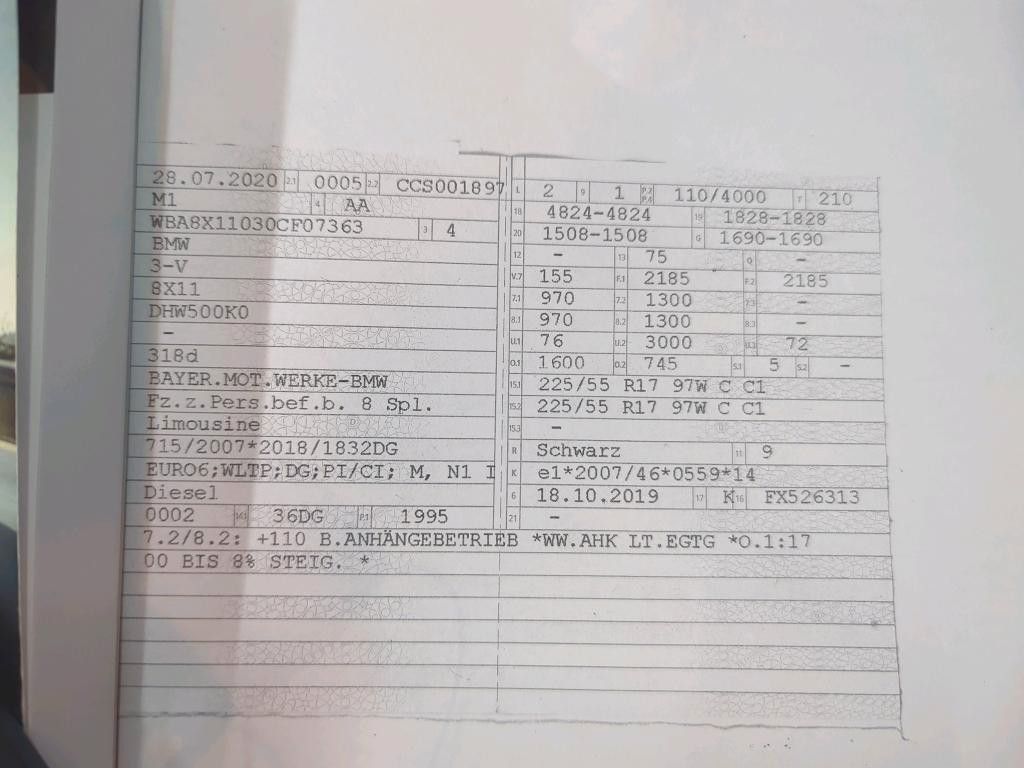 28.07.2020 2.1 0005 2.2 CCS001897
M1 4 AA
WBA8X11030CF07363 3 4
BMW
3-V
8X11
DHW500K0
-
318d
BAYER.MOT.WERKE-BMW
Fz.z.Pers.bef.b. 8 Spl.
Limousine
715/2007*2018/1832DG
EURO6;WLTP;DG;PI/CI; M, N1 I
Diesel
0002 14.1 36DG P.1 1995
L 2 9 1 P.2 P.4 110/4000 T 210
18 4824-4824 19 1828-1828
20 1508-1508 G 1690-1690
12 - 13 75 Q -
V.7 155 F.1 2185 F.2 2185
7.1 970 7.2 1300 7.3 -
8.1 970 8.2 1300 8.3 -
U.1 76 U.2 3000 U.3 72
O.1 1600 O.2 745 S.1 5 S.2 -
15.1 225/55 R17 97W C C1
15.2 225/55 R17 97W C C1
15.3 -
R Schwarz 11 9
K e1*2007/46*0559*14
6 18.10.2019 17 K 16 FX526313
21 -
7.2/8.2: +110 B.ANHÄNGEBETRIEB *WW.AHK LT.EGTG *O.1:17
00 BIS 8% STEIG. *